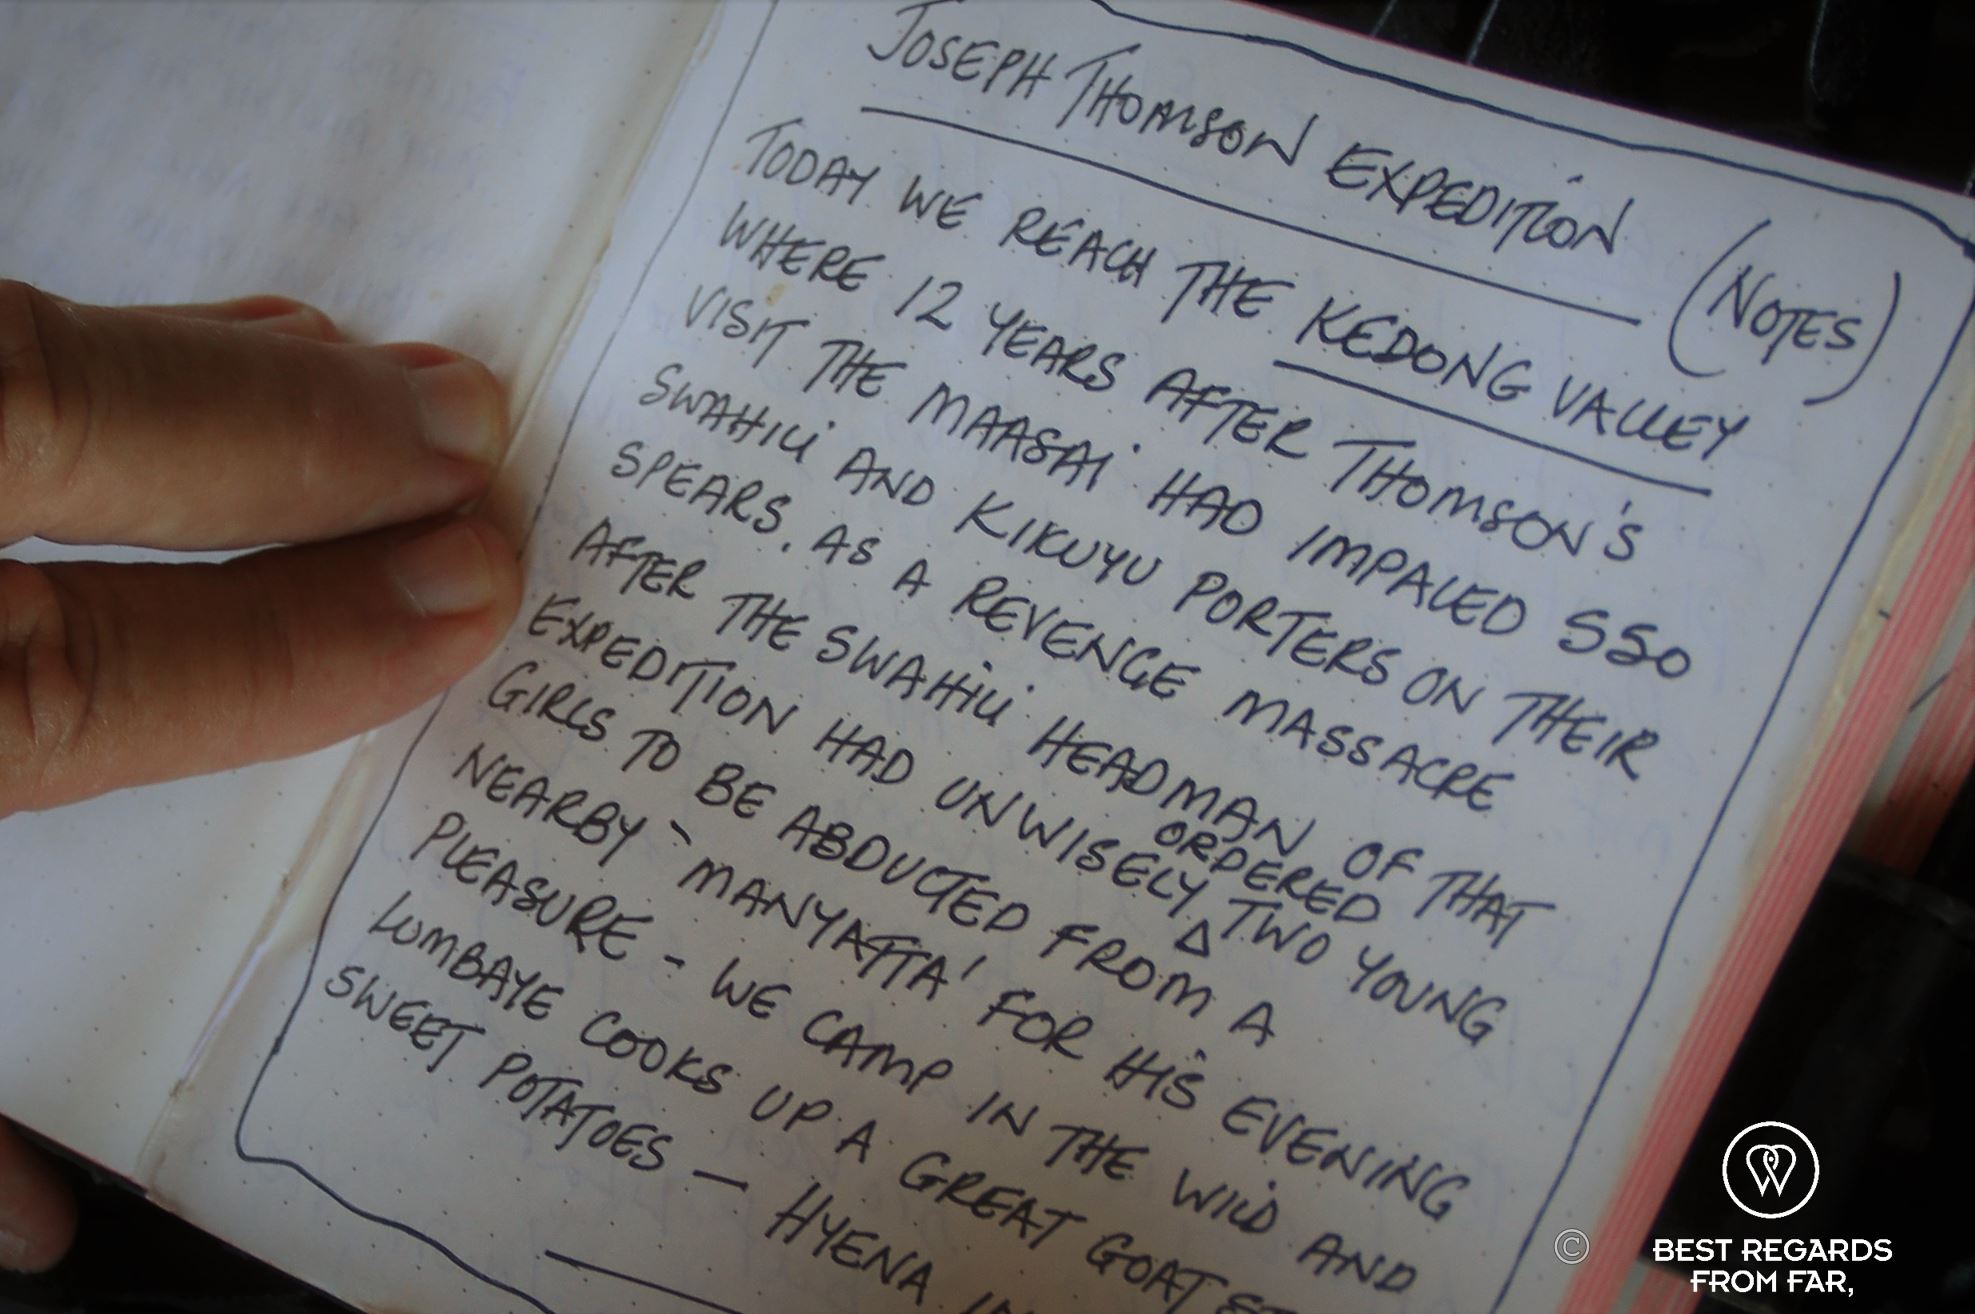 JOSEPH THOMSON EXPEDITION (NOTES)
TODAY WE REACH THE KEDONG VALLEY
WHERE 12 YEARS AFTER THOMSON'S
VISIT THE MAASAI HAD IMPALED 550
SWAHILI AND KIKUYU PORTERS ON THEIR
SPEARS. AS A REVENGE MASSACRE
AFTER THE SWAHILI HEADMAN OF THAT
EXPEDITION HAD UNWISELY ORDERED TWO YOUNG
GIRLS TO BE ABDUCTED FROM A
NEARBY 'MANYATTA' FOR HIS EVENING
PLEASURE - WE CAMP IN THE WILD AND
LUMBAYE COOKS UP A GREAT GOAT
SWEET POTATOES — HYENA
© BEST REGARDS
FROM FAR,